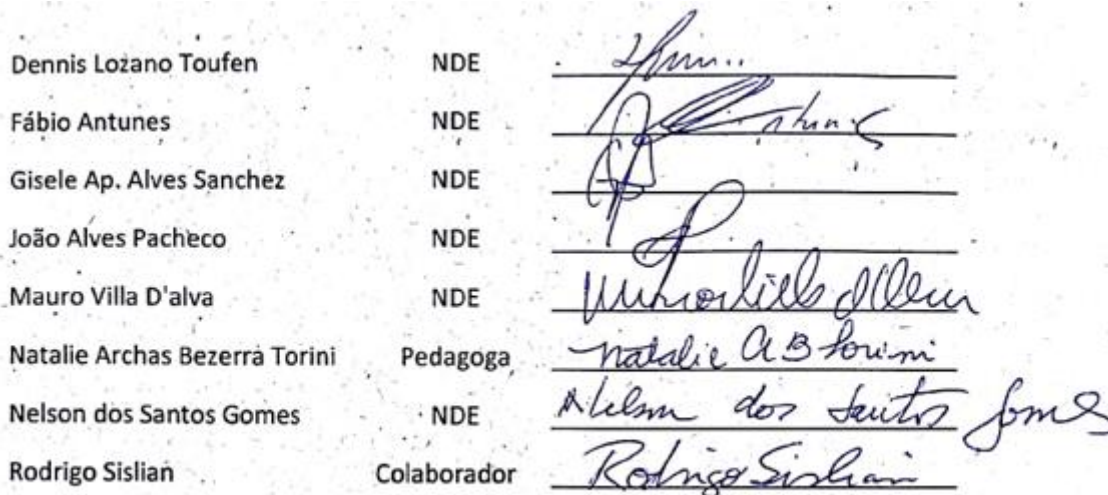 Dennis Lozano Toufen NDE
Fábio Antunes NDE
Gisele Ap. Alves Sanchez NDE
João Alves Pacheco NDE
Mauro Villa D'alva NDE
Natalie Archas Bezerra Torini Pedagoga Natalie A B Torini
Nelson dos Santos Gomes NDE Nelson dos Santos Gomes
Rodrigo Sislian Colaborador Rodrigo Sislian